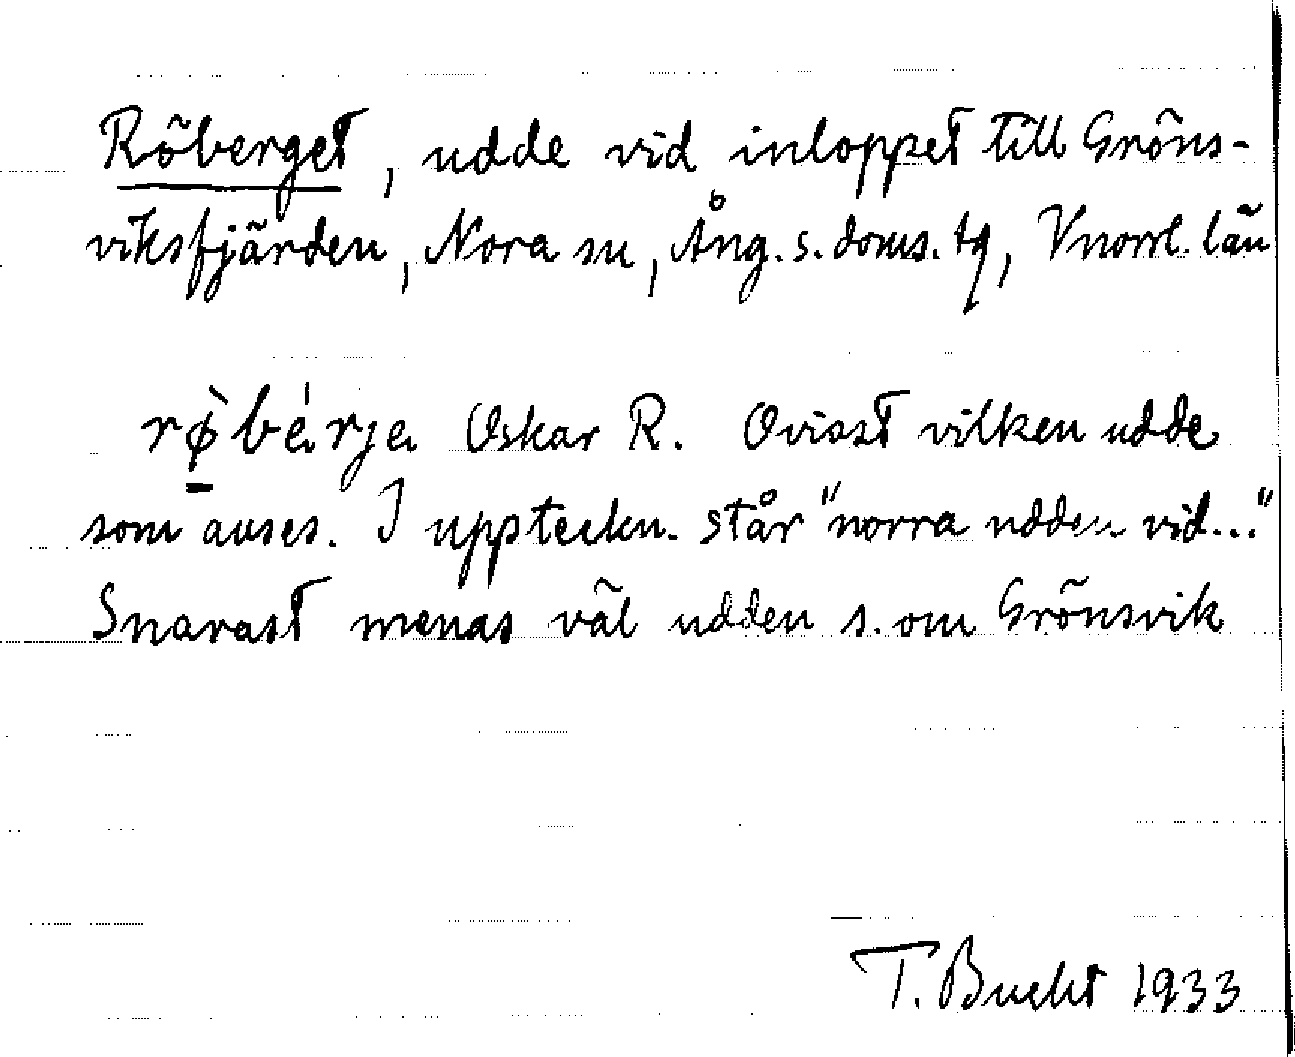 Röberget, udde vid inloppet till Gröns-
viksfjärden, Nora sn, Ång. s. doms. tg, Vnorrl. län
rø̀bérja Oskar R. Ovisst vilken udde
som avses. I uppteckn. står "norra udden vid..."
Snarast menas väl udden s. om Grönsvik
T. Bucht 1933